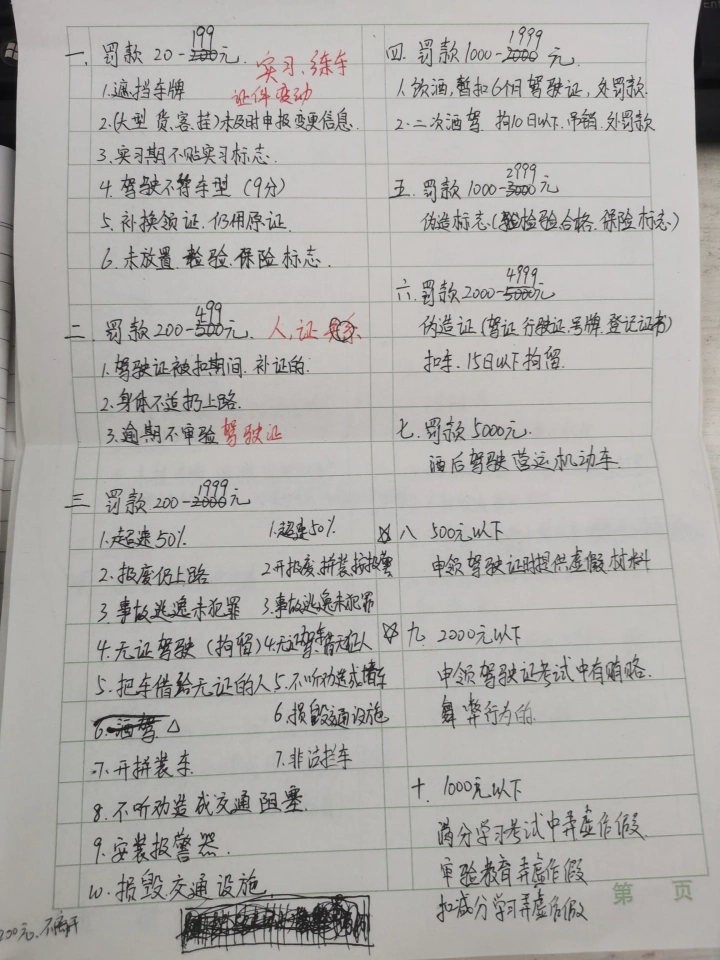 一. 罚款 20-199元.
实习、练车
证件变动
1.遮挡车牌
2.(大型 货.客.挂)未及时申报变更信息.
3.实习期不贴实习标志.
4.驾驶不符车型(9分)
5.补换领证.仍用原证.
6.未放置.检验.保险标志.
二.罚款200-499元. 人,证
1.驾驶证被扣期间.补证的.
2.身体不适扔上路.
3.逾期不审验驾驶证
三 罚款 200-1999元
1.超速50%
2.报废仍上路
3 事故逃逸未犯罪
4.无证驾驶(拘留)
5.把车借给无证的人
6.酒驾 △
7.开拼装车
8.不听劝造成交通阻塞.
9.安装报警器.
10.损毁.交通设施.
1.超速50%
2开报废.拼装.按报警
3.事故逃逸未犯罪
4.无证驾车.借无证人
5.不听劝造成堵车
6.损毁交通设施
7.非法拦车
四. 罚款1000-1999元.
1.饮酒,暂扣6个月驾驶证,处罚款.
2.二次酒驾 拘10日以下.吊销.处罚款
五.罚款1000-2999元
伪造标志.(检验合格.保险标志)
六.罚款2000-4999元
伪造证(驾证.行驶证.号牌.登记证书)
扣车.15日以下拘留.
七.罚款5000元.
酒后驾驶营运机动车.
☆八 500元以下
申领驾驶证时提供虚假材料
☆九. 2000元以下
申领驾驶证考试中有贿赂.
舞弊行为的.
十. 1000元以下
满分学习考试中弄虚作假.
审验教育弄虚作假
扣减分学习弄虚作假
第 页
200元.不离开